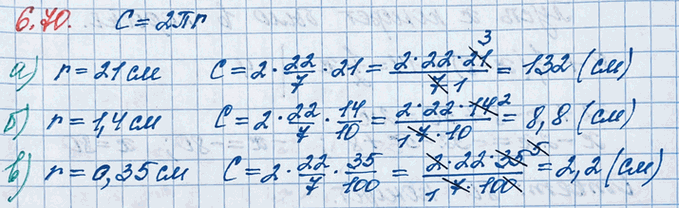 6.70. C = 2πr
а) r = 21 см C = 2 · 22/7 · 21 = 2 · 22 · 21 3 / 7 1 = 132 (см)
б) r = 1,4 см C = 2 · 22/7 · 14/10 = 2 · 22 · 14 2 / 1 7 · 10 = 8,8 (см)
в) r = 0,35 см C = 2 · 22/7 · 35/100 = 2 · 22 · 35 5 / 1 7 · 100 = 2,2 (см)